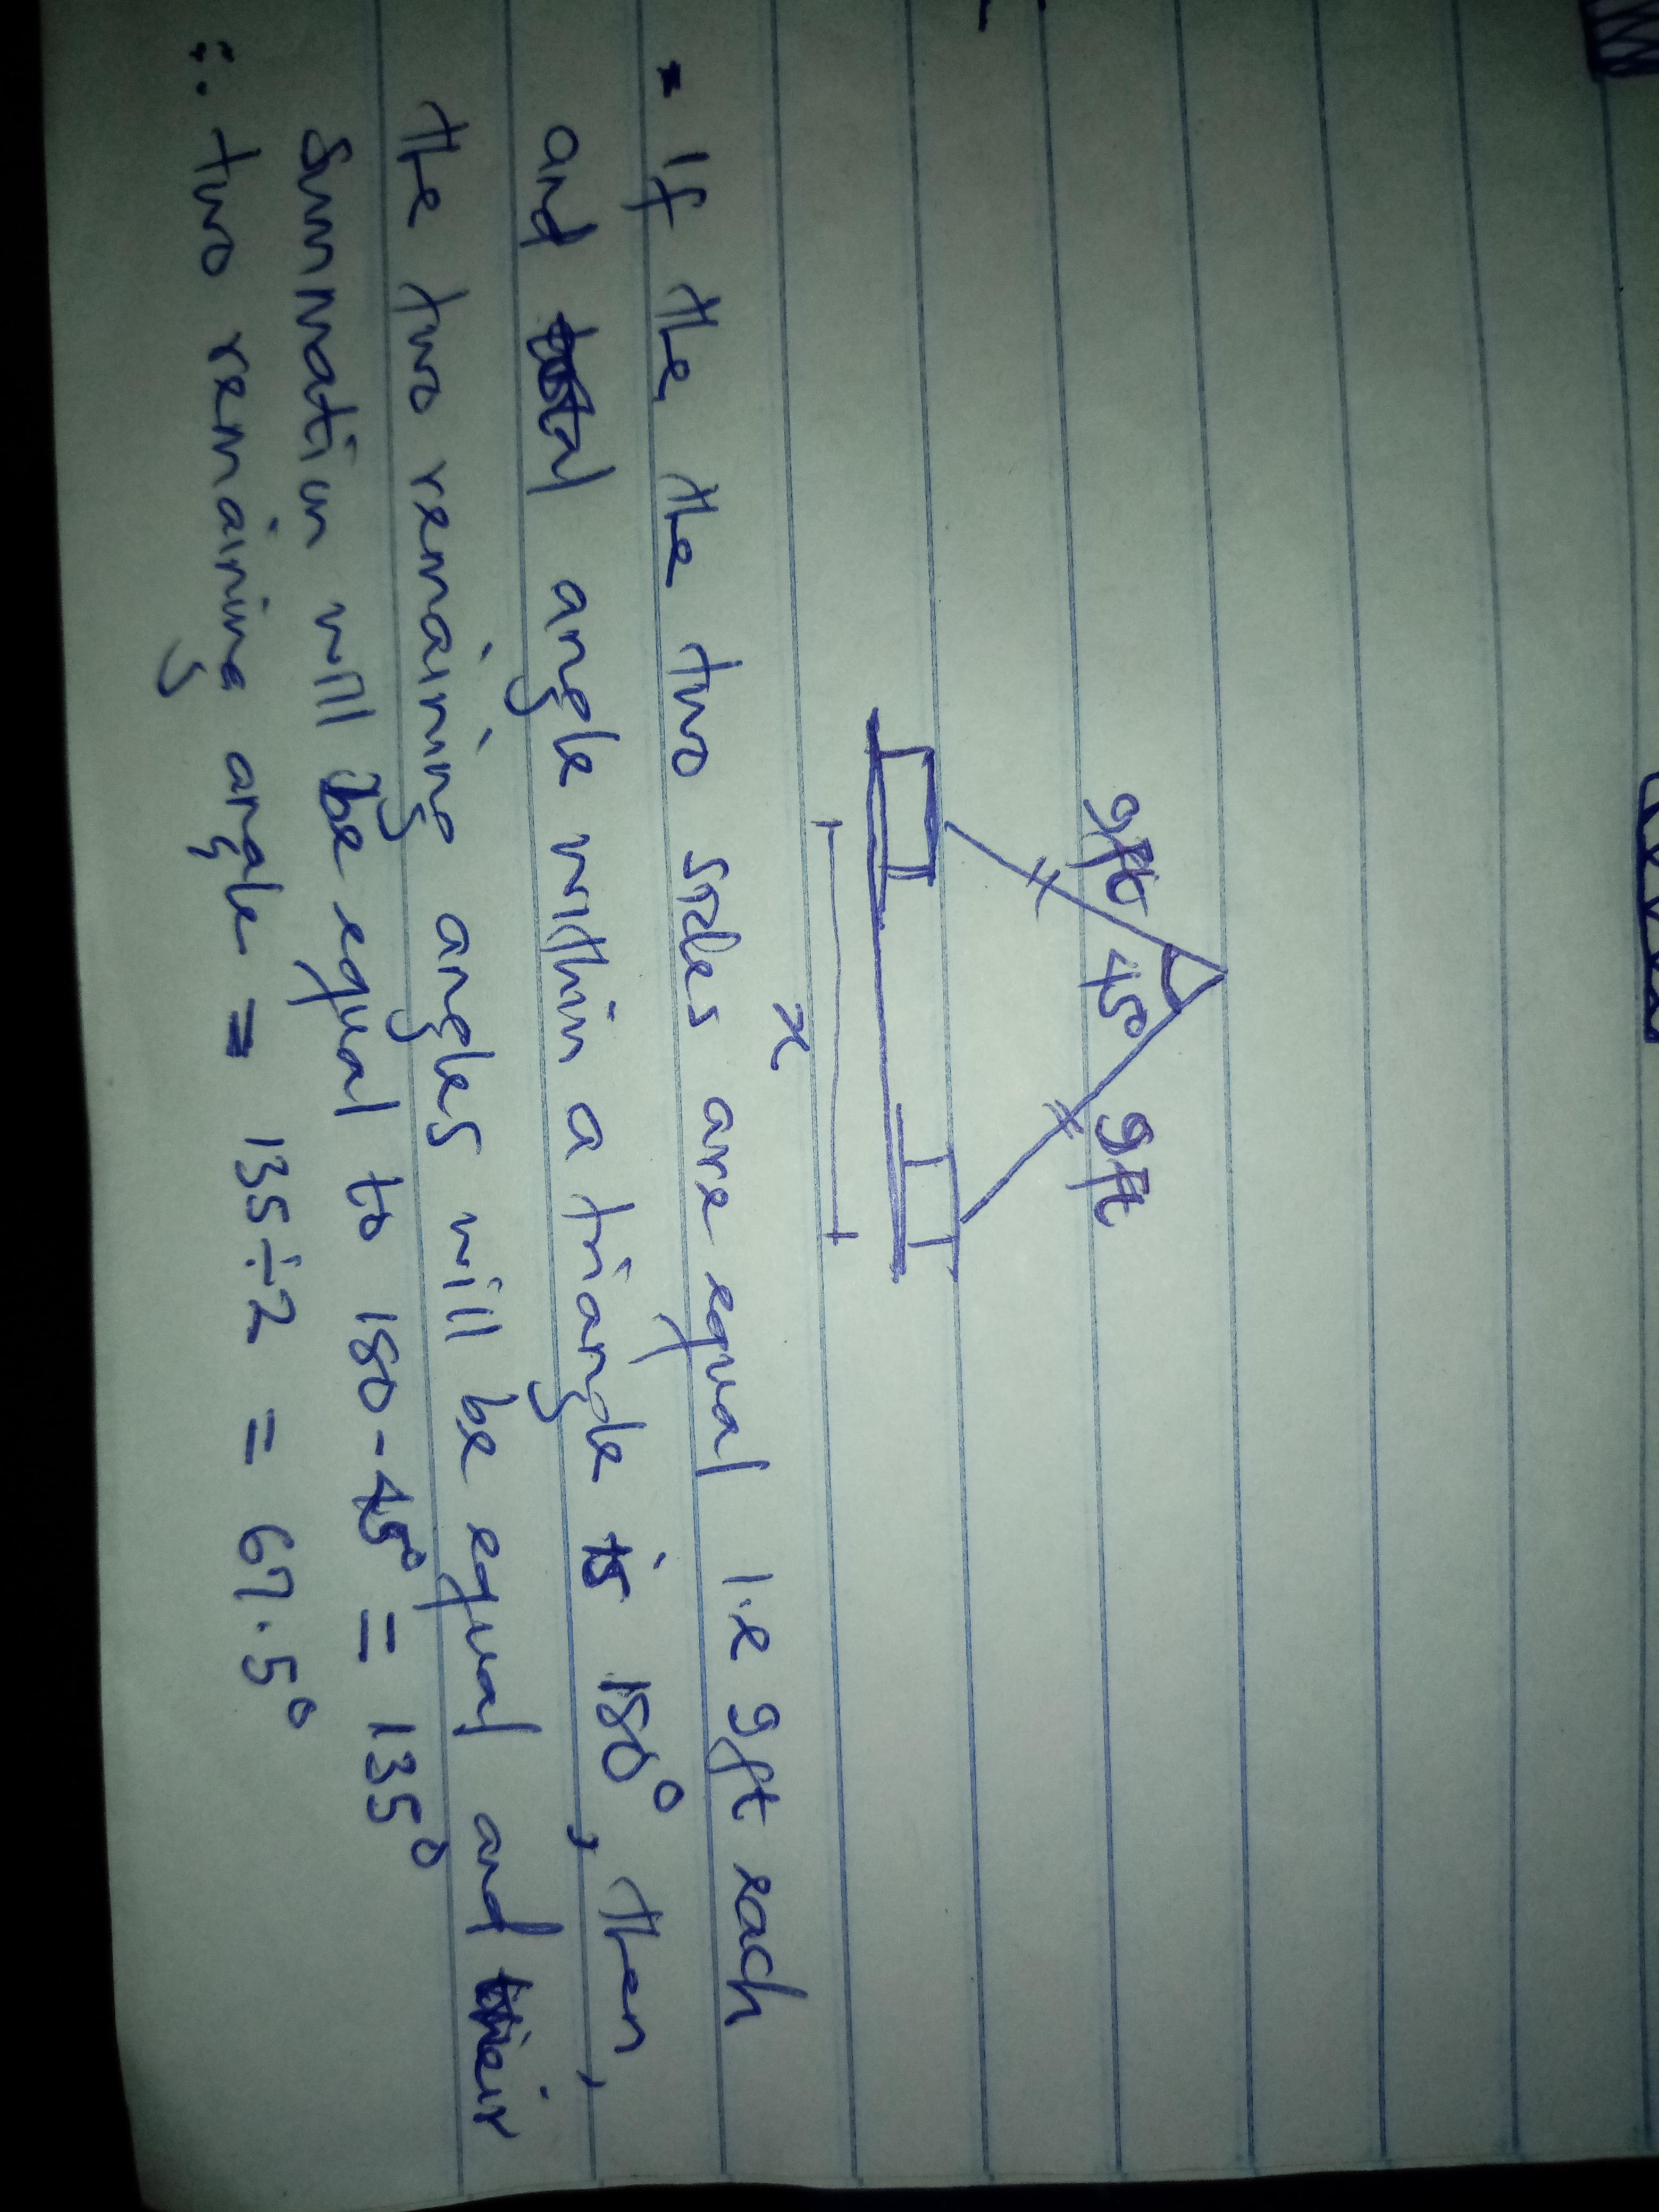 9ft 45° 9ft
x
- If the the two sides are equal i.e 9ft each
and total angle within a triangle is 180°, then,
the two remaining angles will be equal and their
summation will be equal to 180-45° = 135°
∴ two remaining angle = 135÷2 = 67.5°